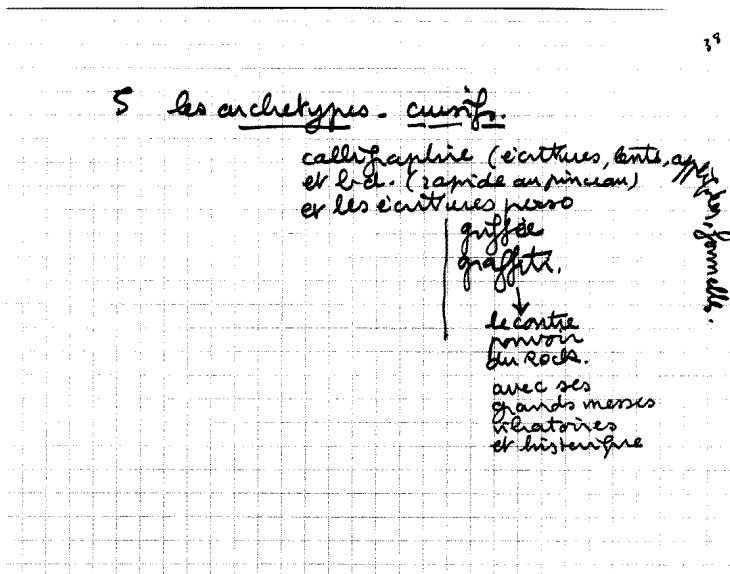 39
5 les archetypes - cursifs.
calligraphie (écritures, lente, appliquée, formelle.
et b.d. (rapide au pinceau)
et les écritures perso
griffée
graffiti.
↓
le contre
pouvoir
du Rock.
avec ses
grands messes
vibratoires
et histerique